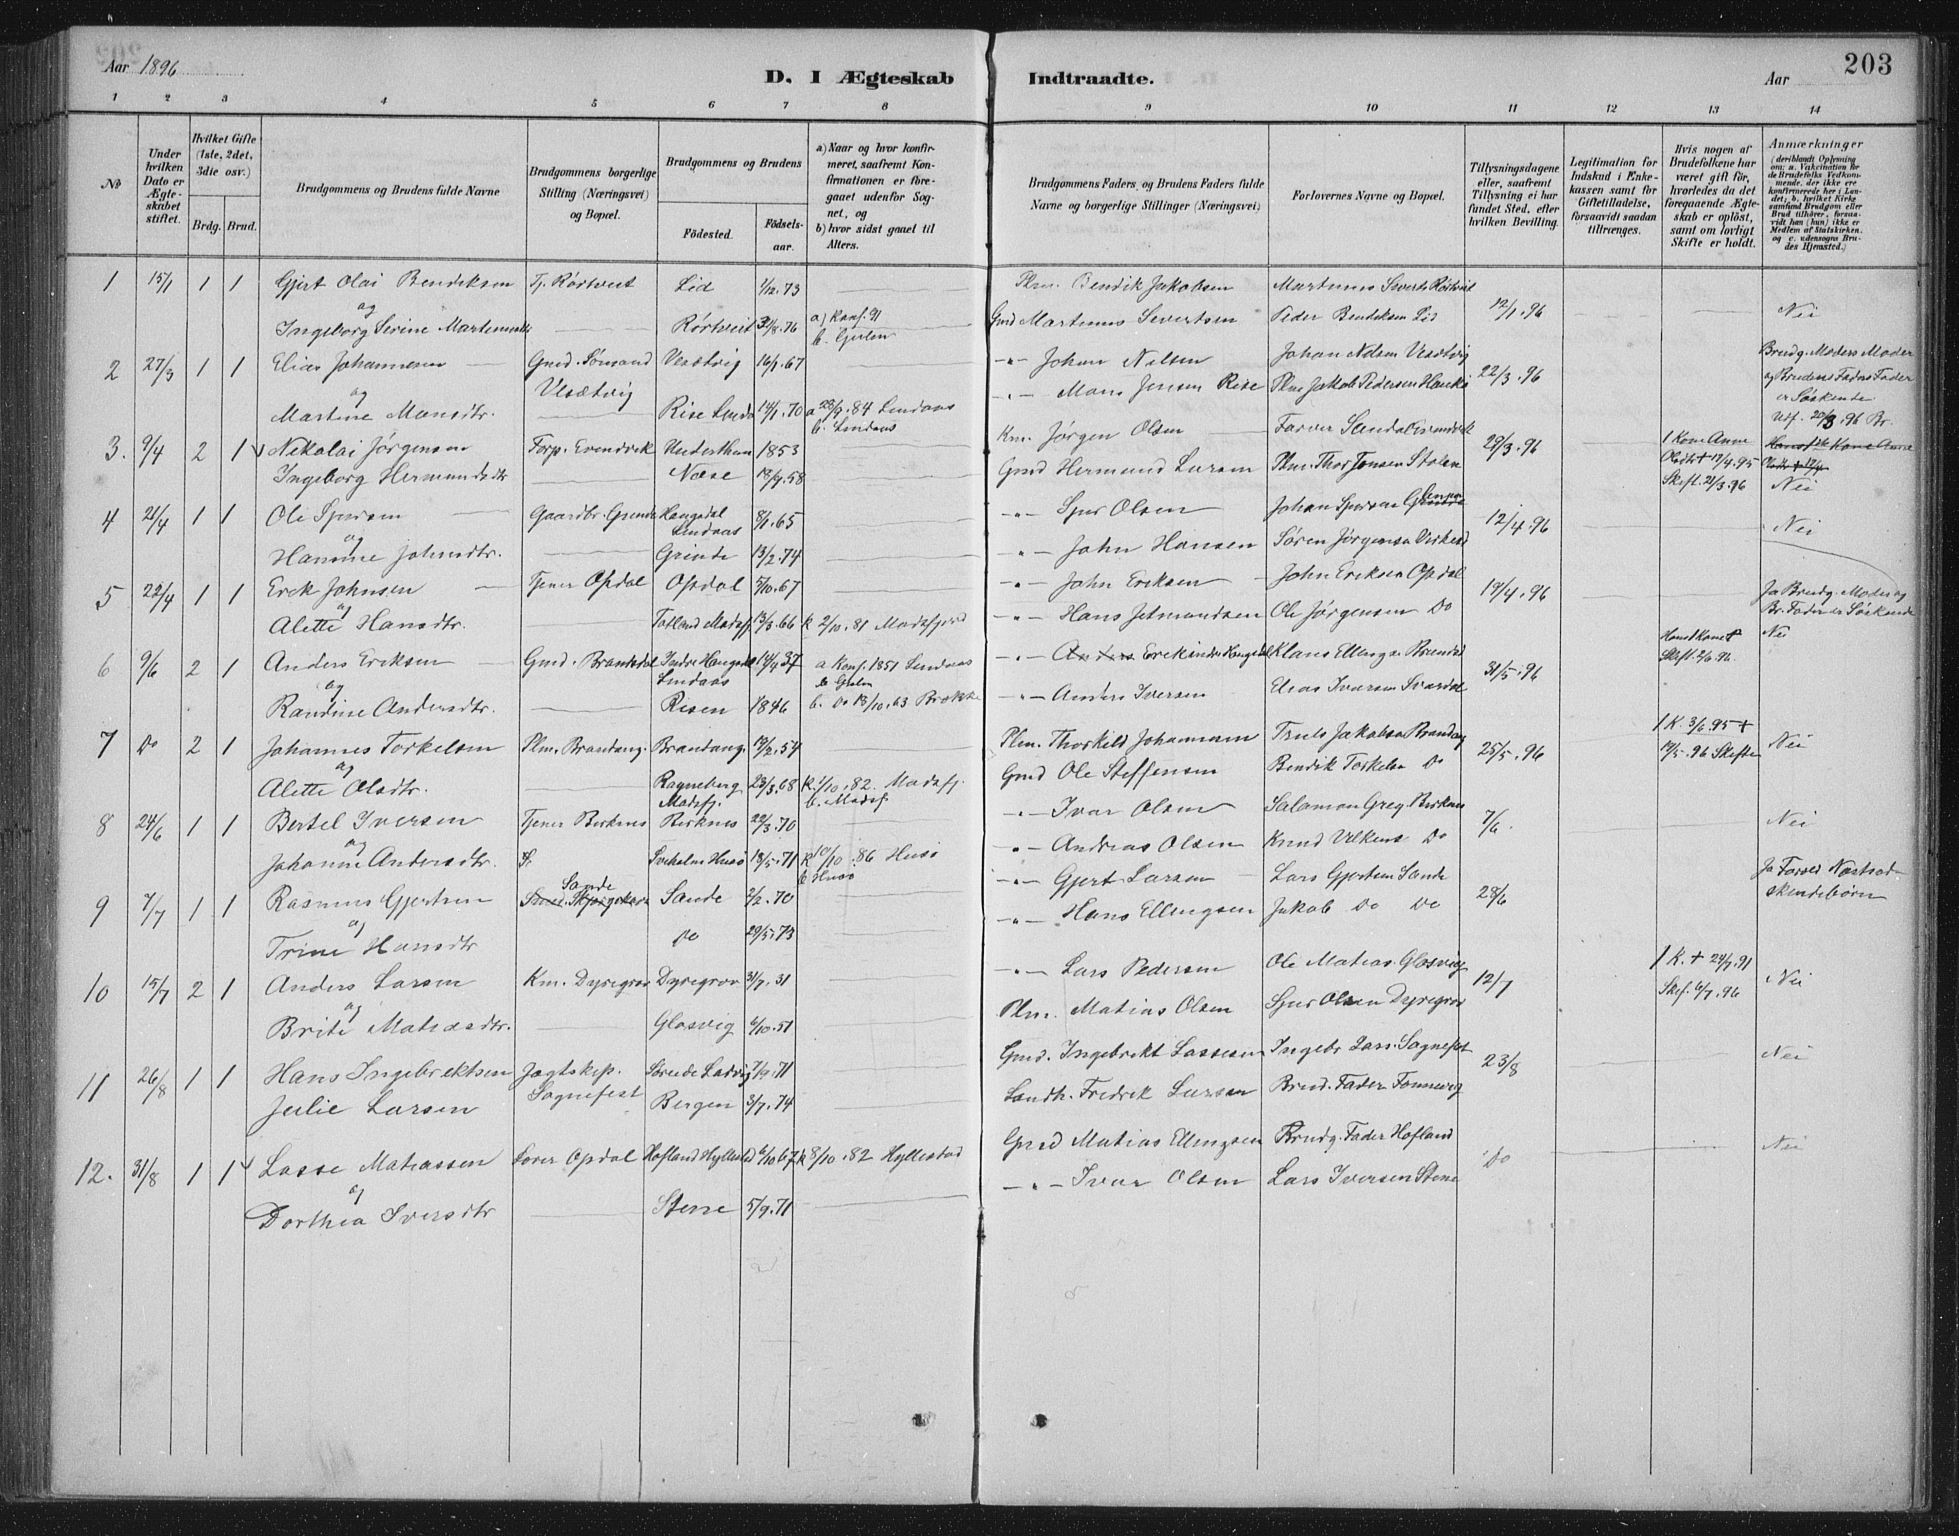 Aar 1896
D. I Ægteskab Indtraadte.
Aar
203
1 2 3 4 5 6 7 8 9 10 11 12 13 14
No
Under hvilken Dato er Ægteskabet stiftet.
Hvilket Gifte (1ste, 2det, 3die osv.)
Brdg. Brud.
Brudgommens og Brudens fulde Navne
Brudgommens borgerlige Stilling (Næringsvei) og Bopæl.
Brudgommens og Brudens
Födested.
Födselsaar.
a) Naar og hvor konfirmeret, saafremt Konfirmationen er foregaaet udenfor Sognet, og
b) hvor sidst gaaet til Alters.
Brudgommens Faders og Brudens Faders fulde Navne og borgerlige Stillinger (Næringsvei)
Forlovernes Navne og Bopæl.
Tillysningsdagene eller, saafremt Tillysning ei har fundet Sted, efter hvilken Bevilling.
Legitimation for Indskud i Enkekassen samt for Giftetilladelse, forsaavidt saadan tiltrænges.
Hvis nogen af Brudefolkene har været gift för, hvorledes da det foregaaende Ægteskab er oplöst, samt om lovligt Skifte er holdt.
Anmærkninger
(deriblandt Oplysning om: a. Vakcination for de Brudefolks Vedkommende, der ikke ere konfirmerede her i Landet; b. hvilket Kirkesamfund Brudgom eller Brud tilhörer, forsaavidt han (hun) ikke er Medlem af Statskirken, og c. udensogns Brudes Hjemsted.)
1 15/1 1 1 Gjert Olai Bendiksen Tj. Rørtveit Lid 1/12.73 Plm. Bendik Jakobsen Martinus Siverts Rörtveit
og
Ingeborg Serine Rörtveit 31/8.76 a) Konf. 91 Gmd Martinus Severtsen Peder Bendiksen Lid 12/1.96 Nei
b. Gulen
2 27/3 1 1 Elias Johannesen Gmd. Vesætvig 16/1.67 Johan Nelsen Johan Nelsen Vesætvig Brudg. Moders Moder
og Vesætvig Mons Jensen Rise Plm Jakob Pedersen 22/3.96 og Brudens Faders Fader
Martine Monsdtr. Rise 14/1.70 a 28/9.84 Lindaas er Söskende
b. Lindaas Udf. 20/3.96 Br.
3. 9/4 2 1 Nikolai Jörgensen Forp. Evendvik 1853 Km. Jörgen Olsen Farver 29/3.96 1 Kone Anne
Ingeborg Hermundsdtr Næse 13/9.58 Gmd Hermund Larsen Plm. Thor Jensen Stolen Skift. 21/3.96 Nei
4 21/4 1 1 Ole Sjursen Gaardbr. Grinde Haugsdal 8/1.65 Sjur Olsen Johan Sjursen 12/4.96 Nei
og Lindaas
Hansine Johnsdtr. Grinde 13/2.74 John Hansen Sören Jörgensen
5 22/4 1 1 Erik Johnsen Tjener Opdal Opdal 5/10.67 John Eriksen John Eriksen Opdal 19/4.96 Ja Brudg. Moder og
og Br. Fader er Söskende
Alette Hansdtr. 13/3.66 k 2/10.81 Masfjord Hans Jetmundsen Ole Jörgensen Do
6 9/6 2 1 Anders Eriksen Gmd. Brandsdal Indre Haugsdal 14/4 37 a Konf. 1851 Lindaas 31/5.96 Nei
og Lindaas b Gulen Skift. 2/6.96.
Randine Andersdtr. Risen 1846 b. Do 13/10.63 Brekke Anders Iversen Elias Ivarsen
7 Do 2 1 Johannes Torkelsen Plm. Brandang. Brandang. 19/2.54 Plm. Thorkild Johannesen Truls Jakobsen Brandang 25/5.96 1 K. 3/6.95 + Nei
og 17/5.96 Skifte
Alette Olsdtr. 23/3.68 k. 1/10.82. Masfj. Gmd Ole Steffensen Bendik Torkelsen Do
Masfj. b. Masf.
8 24/6 1 1 Bertel Iversen Tjener Birknes Birknes 22/3.70 Ivar Olsen Salamon Greg. Birknes 7/6. Nei
og
Johanne Andersdtr. Husö 18/5.71 k 10/10.86 Husö Andreas Olsen Knud Do
b Husö
9 7/7 1 1 Rasmus Gjertsen Sande Sande 2/2.70 Gjert Larsen Lars Gjertsen Sande 28/6 Ja Næstsödskendebörn
og
Trine Hansdtr Do 29/5.73 Hans Ellingsen Jakob Do Do
10 15/7 2 1 Anders Larsen Km. Dyregrov Dyregrov 31/7.31 Lars Pedersen Ole Matias. Glosvig 12/7 1 K. + 29/7.91 Nei
og Skif. 6/7.96
Brite Matiasdtr. Glosvig 6/10.51 Plm. Matias Olsen Sjur Olsen Dyregrov
11 26/8 1 1 Hans Ingebrektsen Jagtskip. Ladvig 7/9.71 Gmd. Ingebrekt Lassesen Ingebr Lass. Sognefest 23/8 Nei
Julie Larsen Sognefest Bergen 3/7.74 Landh. Fredrik Larsen Brud. Fader Fonnevig
12. 31/8 1 1 Lasse Matiassen Opdal Hofland Hyllestad 6/10.67 k 8/10.82 Hyllestad Gmd Matias Ellingsen Brudg. Fader Hofland Do Nei
og
Dorthea Iversdtr Stene 5/9.71 Ivar Olsen Lars Iversen Stene